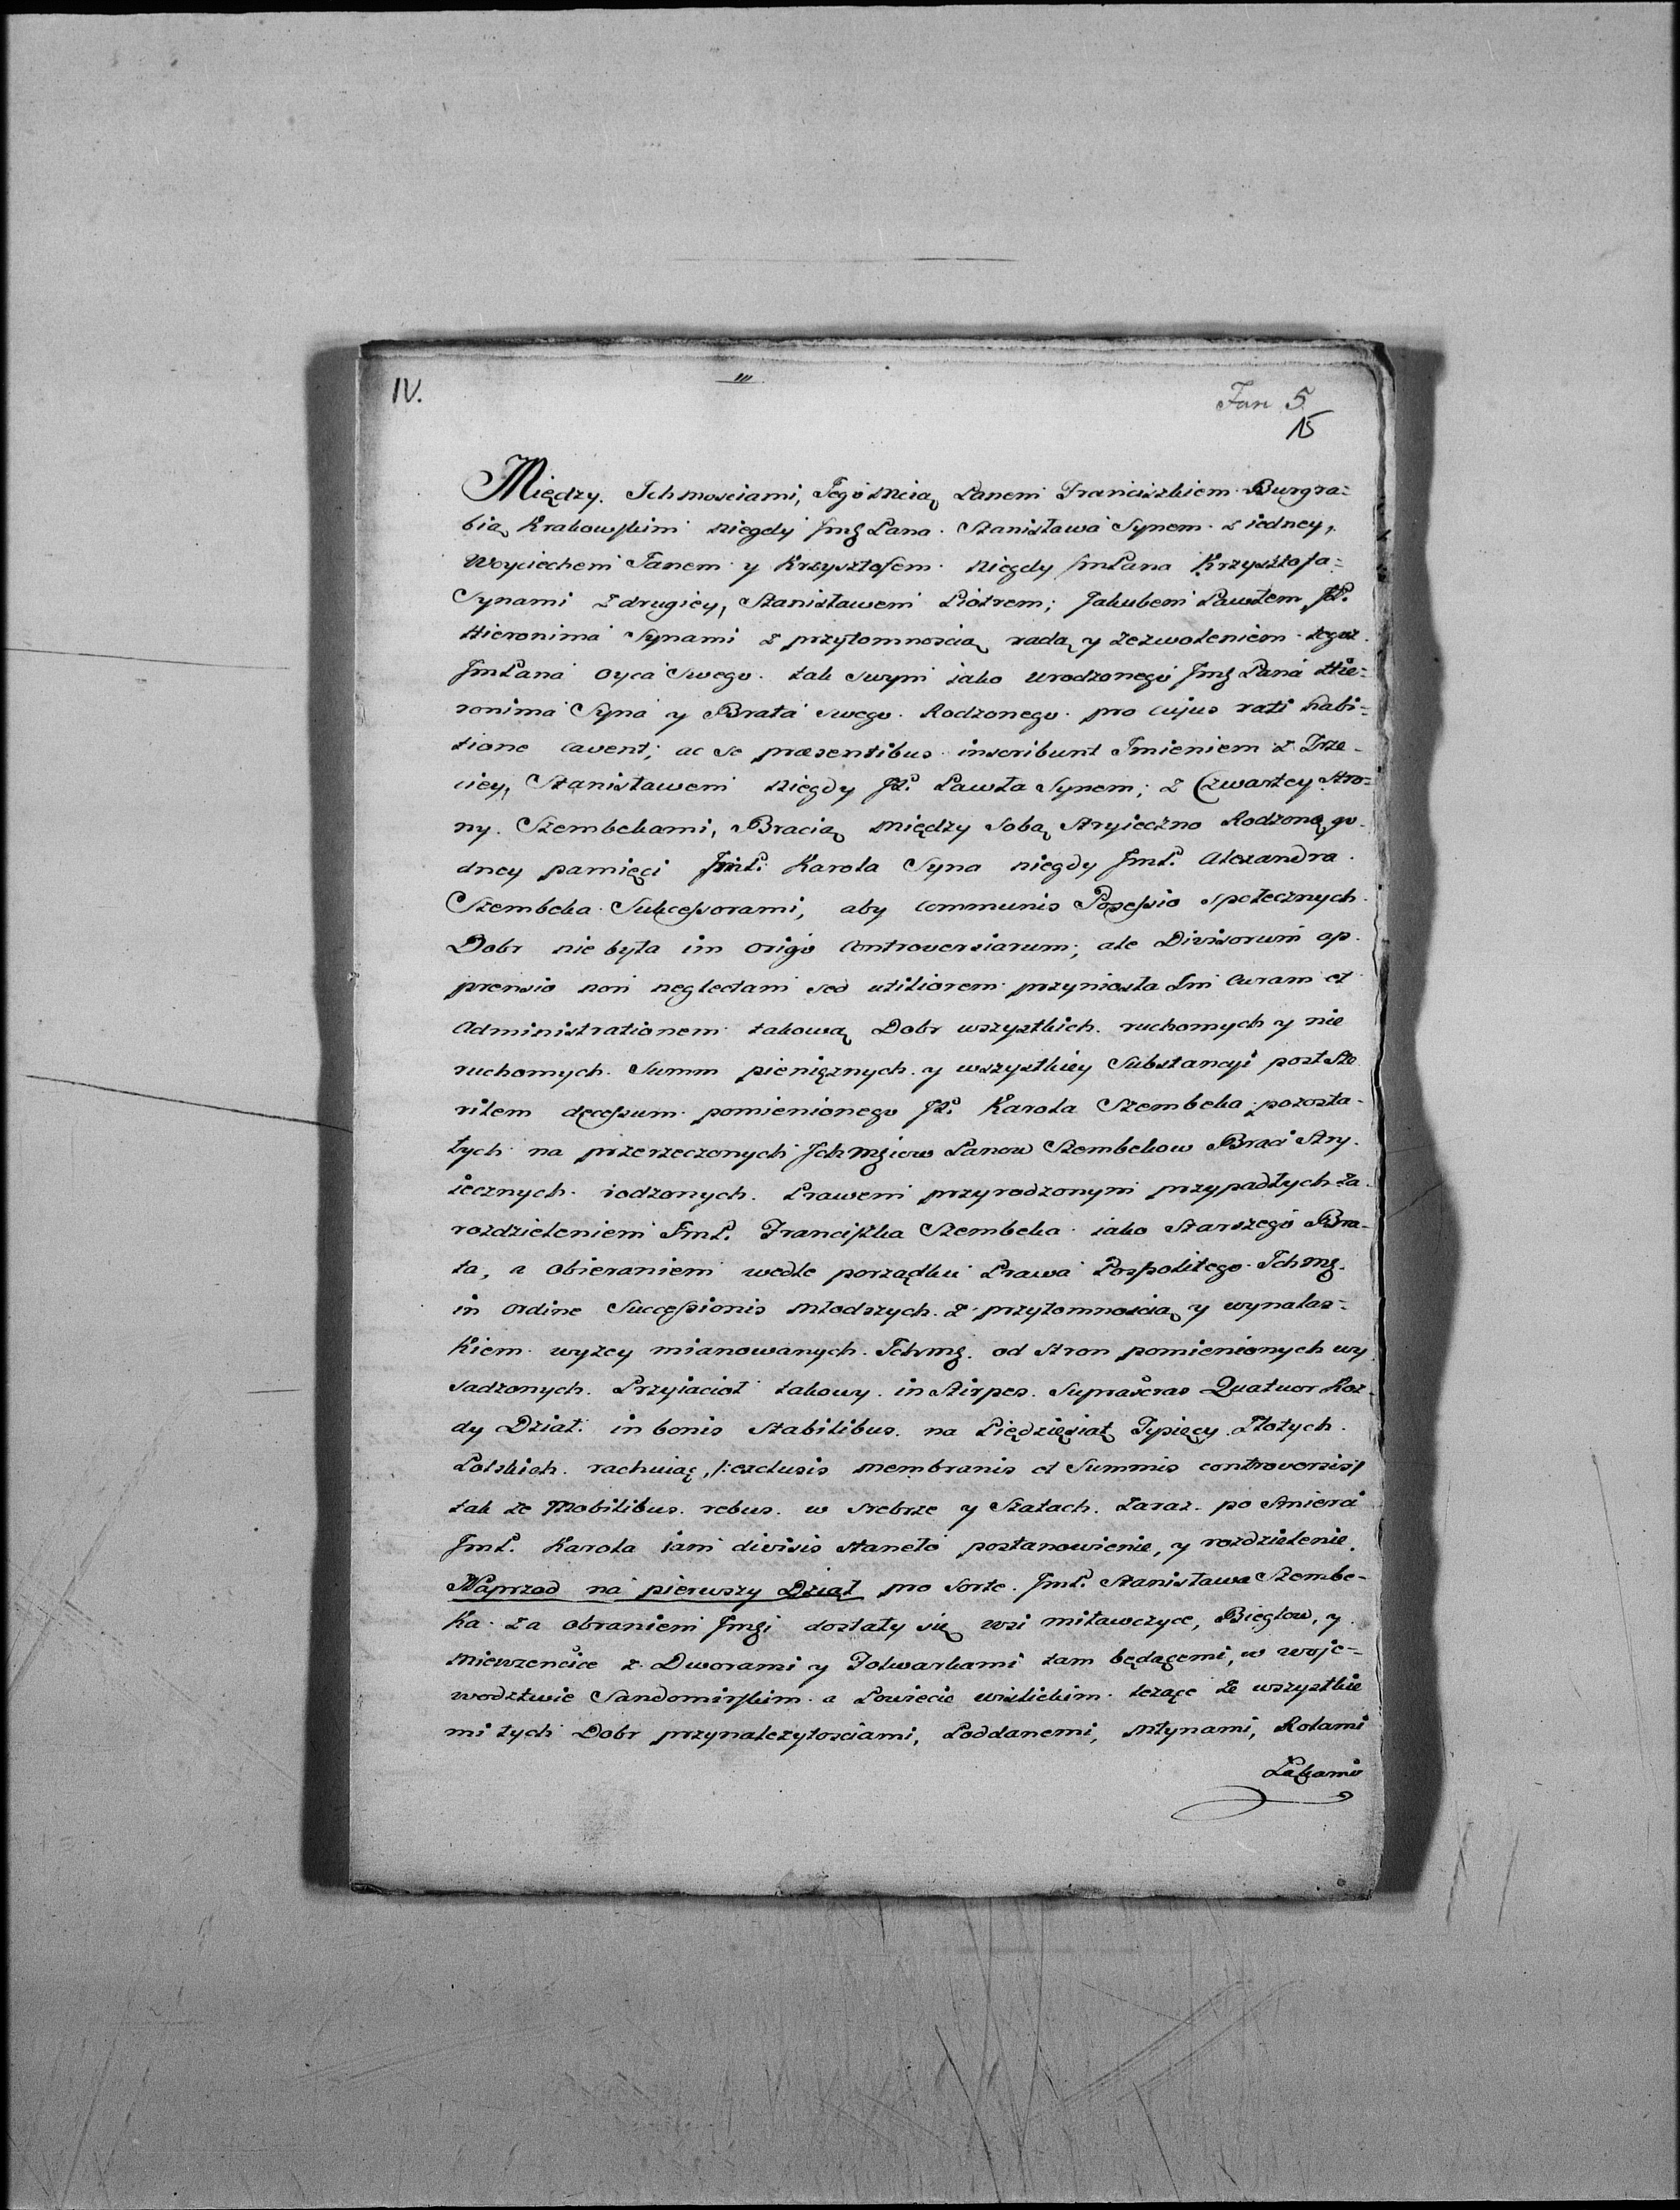 IV.
Fan 5
15
Między Ichmosciami, Jego Mcią Panem Franciszkiem Burgra=
bią Krakowskim niegdy Jmę Pana Stanisława Synem z iedney,
Woyciechem Janem y Krzysztofem niegdy JmPana Krzysztofa=
Synami z drugiey, Stanisławem Piotrem; Jakubem Pawłem JP.
Hieronima Synami z przytomnoscią radą y zezwoleniem tegoz
JmPana Oyca Swego tak swym iako urodzonego Jmę Pana Hie=
ronima Syna y Brata swego Rodzonego pro cujus rati habi=
tione cavent; ac se præsentibus inscribunt Imieniem z Trze-
ciey, Stanisławem niegdy JP. Pawła Synem; z Czwartey Stro=
ny Szembekami, Bracią między sobą Stryieczno Rodzoną go-
dney pamięci JmP. Karola Syna niegdy JmP. Alexandra
Szembeka Sukcessorami, aby communis Possessio społecznych
Dobr nie była im origo Controversiarum; ale Divisorum ap-
prensio non neglectam sed utiliorem przyniosła Im Curam et
Administrationem takową Dobr wszystkich ruchomych y nie
ruchomych Summ pieniężnych y wszystkiey Substancyi post Ste
rilem decessum pomienionego JP. Karola Szembeka pozosta-
łych na przerzeczonych Ichmęiow Panow Szembekow Braci Stry-
iecznych rodzonych Prawem przyrodzonym przypadłych za
rozdzieleniem JmP. Franciszka Szembeka iako Starszego Bra-
ta, a Obieraniem wedle porządku Prawa Pospolitego Ichmę.
in ordine Successionis Młodszych z przytomnoscią y wynalas=
kiem wyzey mianowanych Ichmę. od Stron pomienionych wy
sadzonych Przyiacioł takowy in Stirpes Quatuor Koz-
dy Dział in bonis Stabilibus na Piędziesiąt Tysięcy Złotych
Polskich rachuiąc, /: exclusis membranis et Summis controversis /
tak ze Mobilibus rebus w Srebrze y Szatach zaraz po Smierci
JmP. Karola iam divisis staneło postanowienie, y rozdzielenie.
Naprzod na pierwszy Dział pro Sorte JmP. Stanisława Szembe-
ka za obraniem Jmęi dostały się wsi miławczyce, Bieglow, y
Mierzenčice z Dworami y Folwarkami tam będącemi, w woje-
wodztwie Sandomirskim a Powiecie wislickim lezące ze wszystkie
mi tych Dobr przynalezytosciami, Poddanemi, Młynami, Rolami
Łąkami